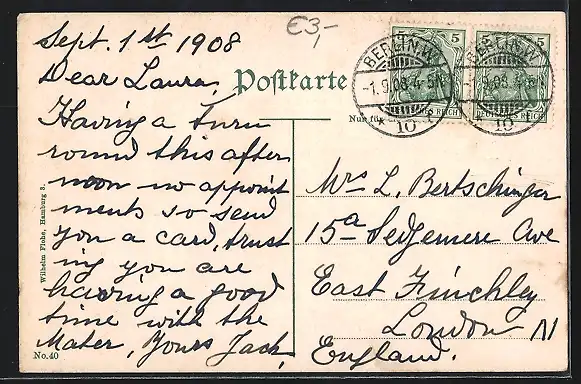 €3,-
Sept. 1st 1908
Dear Laura,
Having a turn
round this after
noon no appoint
ments so send
you a card, trust
ing you are
having a good
time with the
Mater, Yours Jack,
Postkarte
Nur für
5
5
BERLIN.W.
-1.9.08.4-5N
* 10 c
BERLIN.W.
10
DEUTSCHES REICH
Mrs L. Bertschinger
15a Sedgemere Ave
East Finchley
London N
England.
Wilhelm Flohe, Hamburg 3.
No.40